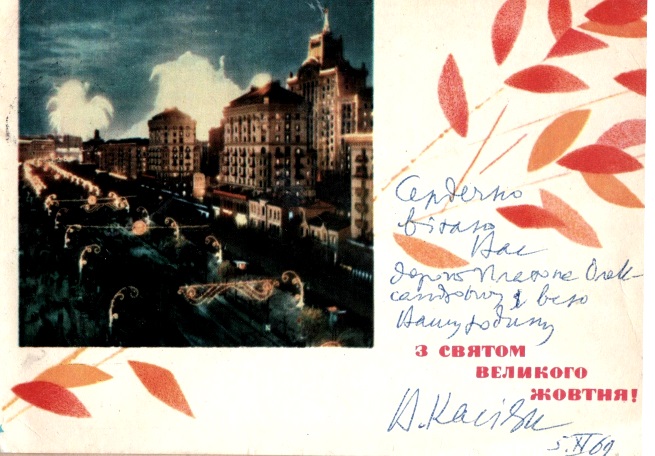 Сердечно
вітаю
Вас
дорогий Платоне Олек-
сандровичу і всю
Вашу родину
З СВЯТОМ
ВЕЛИКОГО
ЖОВТНЯ!
5.XI 69